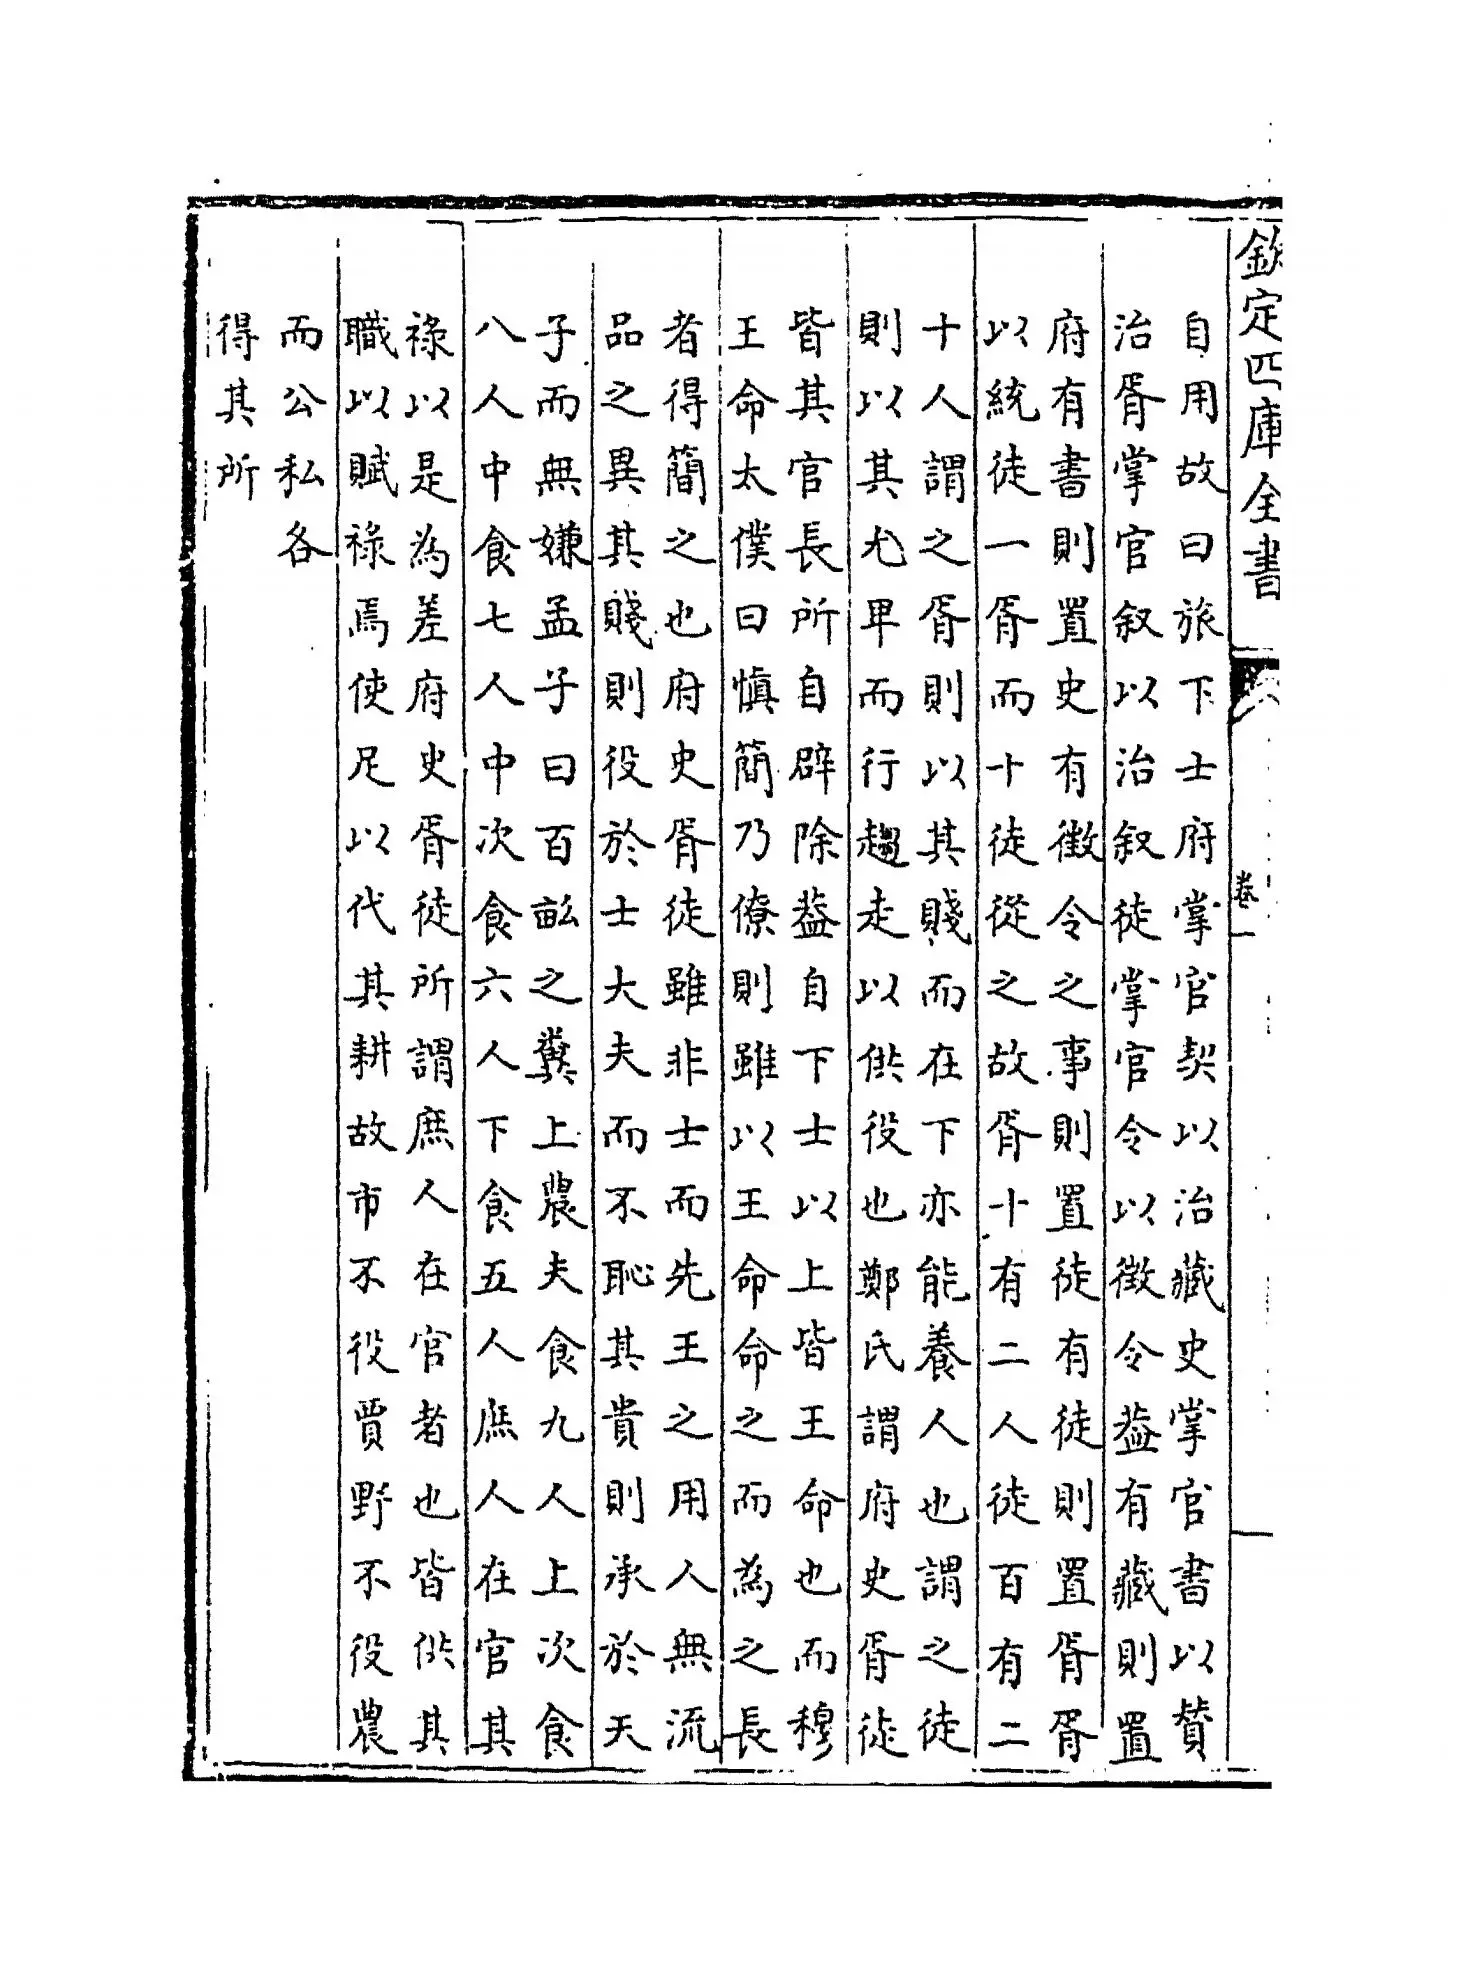 欽定四庫全書
卷一
自用故曰旅下士府掌官契以治藏史掌官書以贊
治胥掌官叙以治叙徒掌官令以徴令葢有藏則置
府有書則置史有徴令之事則置徒有徒則置胥胥
以統徒一胥而十徒從之故胥十有二人徒百有二
十人謂之胥則以其賤而在下亦能養人也謂之徒
則以其尤卑而行趨走以供役也鄭氏謂府史胥徒
皆其官長所自辟除葢自下士以上皆王命也而穆
王命太僕曰慎簡乃僚則雖以王命命之而為之長
者得簡之也府史胥徒雖非士而先王之用人無流
品之異其賤則役於士大夫而不恥其貴則承於天
子而無嫌孟子曰百畝之糞上農夫食九人上次食
八人中食七人中次食六人下食五人庶人在官其
祿以是為差府史胥徒所謂庶人在官者也皆供其
職以賦祿焉使足以代其耕故市不役賈野不役農
而公私各
得其所